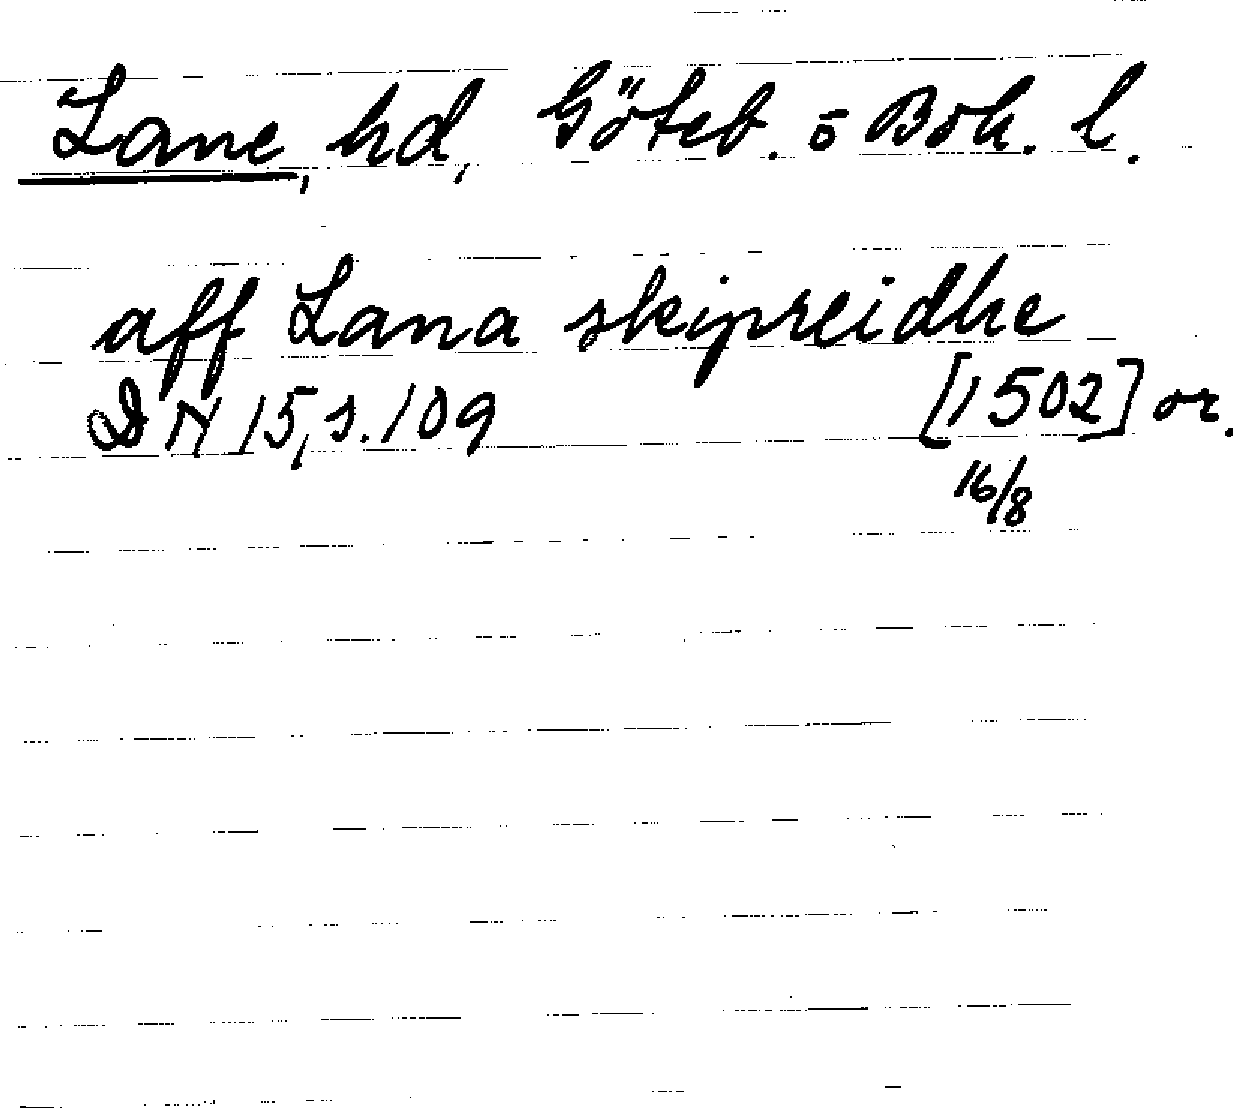 Lane, hd, Göteb. o Boh. l.
aff Lana skipreidhe
DN 15, s. 109 [1502] or.
16/8